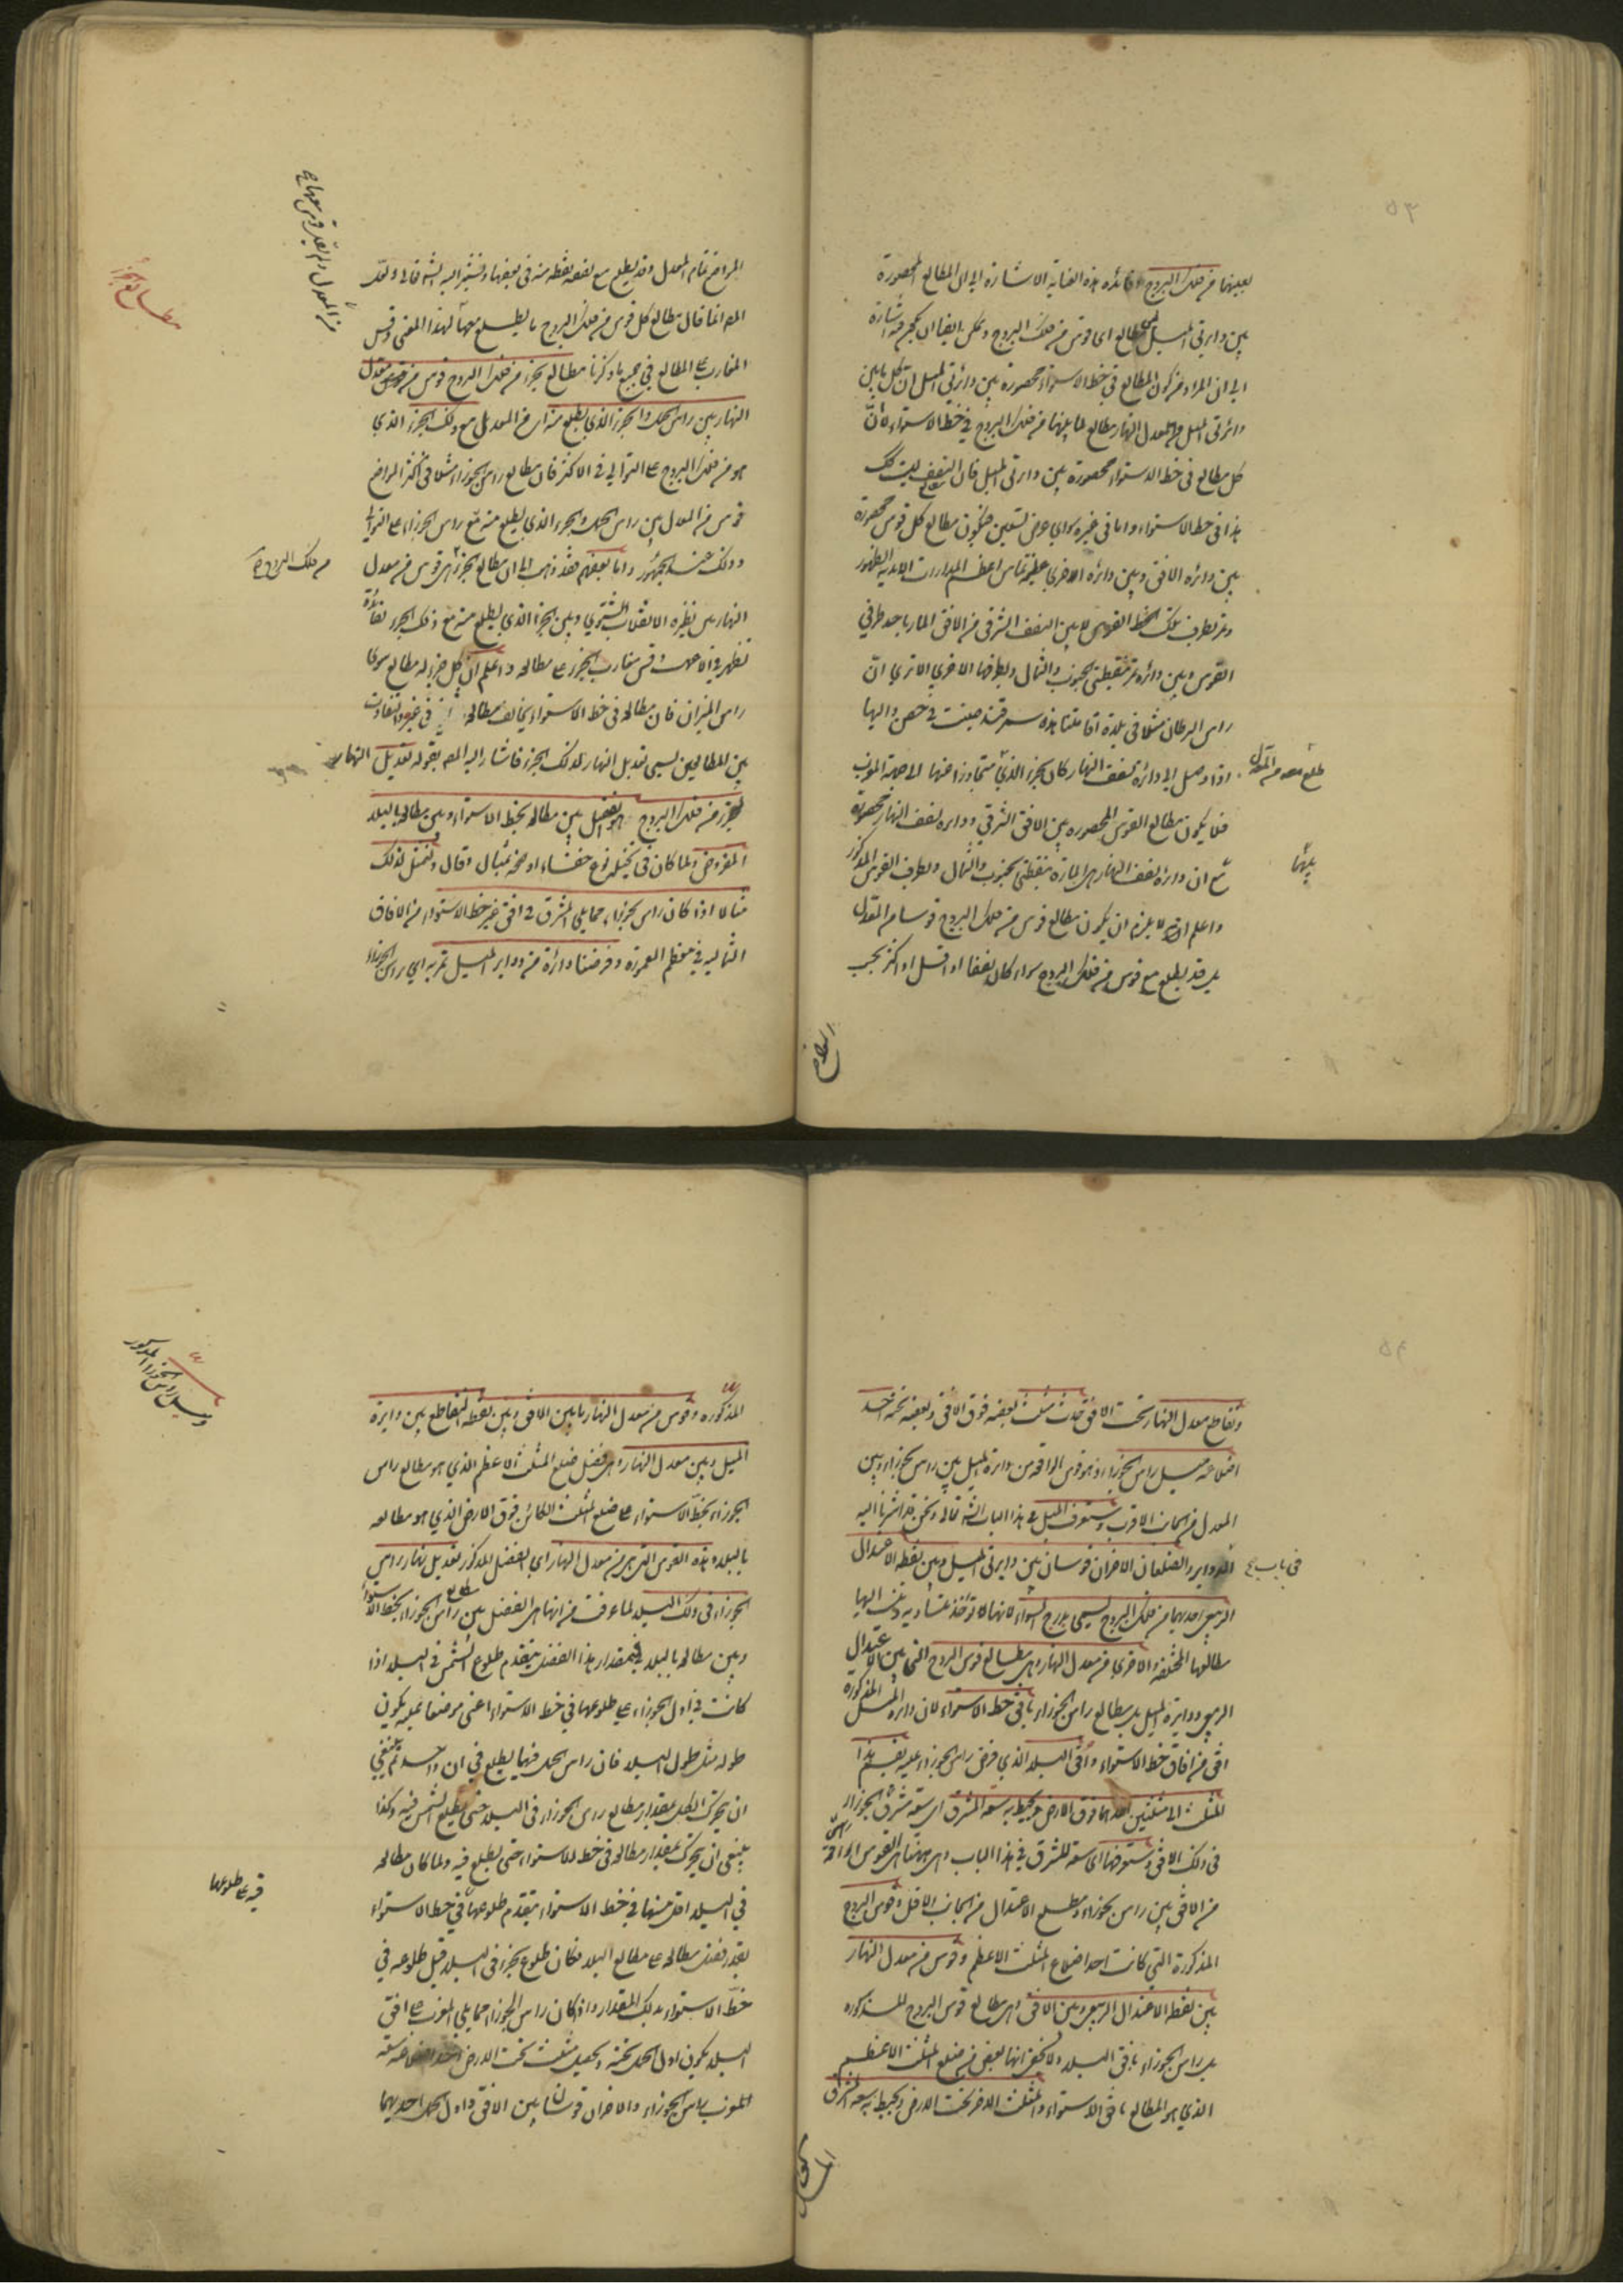 بعينها من فلك البروج فائدة هذه العناية الاشارة الى ان المطالع المحصورة
بين دايرتى الميل مطالع اى قوس من فلك البروج ويمكن ايضا ان يكون فيه اشارة
الى ان المراد من كون المطالع فى خط الاستواء محصورة بين دائرتى الميل ان كل ما بين
دائرتى الميل من معدل النهار مطالع لما بينهما من فلك البروج فى خط الاستواء لا ان
كل مطالع فى خط الاستواء محصورة بين دائرتى الميل فان النصف ليست كك
هذا فى خط الاستواء واما فى غيره سواى عرض تسعين فيكون مطالع كل قوس محصورة
بين دائرة الافق وبين دائرة اخرى عظيمة تماس اعظم المدارات الابدية الظهور
وتمر بطرف تلك القوس بين النصف الشرقى من الافق المار باحد طرفى
القوس وبين دائرة تمر بنقطتى الجنوب والشمال وبطرفها الاخرى الا ترى ان
راس السرطان مثلا فى بلدة اقامتنا هذه سمرقند صينت
اذا وصل الى دائرة نصف النهار كان الجزء الذى متجاوزا عنها الى جهة المغرب
طلع معه من المعدل
فلا يكون مطالع القوس المحصورة بين الافق الشرقى ودائرة نصف النهار محصورة
بينهما
مع ان دائرة نصف النهار هى المارة بنقطتى الجنوب والشمال وبطرف القوس المذكور
واعلم انه لا يلزم ان يكون مطالع قوس من فلك البروج قوسا من المعدل
بل قد يطلع مع قوس من فلك البروج سواء كان نصفا او اقل او اكثر بحسب
المواضع تمام المعدل وقد يطلع مع نصفه نقطة منه فى بعضها وسنشير اليه ان شاء الله تعالى ولعل
من المعدل
المص انما قال مطالع كل قوس من فلك البروج ما يطلع معها لهذا المعنى وقس
مطالع الجزء
المغارب على المطالع فى جميع ما ذكرنا مطالع الجزء من فلك البروج قوس من معدل
النهار بين راس الحمل والجزء الذى يطلع منه اى من المعدل مع ذلك الجزء الذى
هو من فلك البروج على التوالى فى الاكثر فان مطالع راس الجوزاء مثلا فى اكثر المواضع
قوس من المعدل بين راس الحمل والجزء الذى يطلع منه مع راس الجوزاء على التوالى
وذلك عند الجمهور واما بعضهم فقد ذهب الى ان مطالع الجزء هى قوس من معدل
من فلك البروج
النهار بين نظيرة الانقلاب الشتوى وبين الجزء الذى يطلع منه مع ذلك الجزء لفائدة
تظهر فى وقس مغارب الجزء على مطالعه واعلم ان كل جزء له مطالع سوى
راس الميزان فان مطالعه فى خط الاستواء يخالف مطالعه فى غيره والتفاوت
بين المطالعين يسمى تعديل النهار لذلك الجزء فاشار اليه المص بقوله تعديل النهار
لجزء من فلك البروج هو الفضل بين مطالعه بخط الاستواء وبين مطالعه بالبلد
المفروض ولما كان فى تخيله نوع خفاء اوضحه بمثال وقال ولنمثل لذلك
مثالا اذا كان راس الجوزاء مما يلى المشرق فى افق غير خط الاستواء من الافاق
الشمالية فى معظم المعمورة وفرضنا دائرة من دواير الميل تمر به اى براس الجوزاء
وتقاطع معدل النهار تحت الافق حدث مثلث بعضه فوق الافق وبعضه تحته احد
اضلاعه ميل راس الجوزاء اذ هو قوس الواقعة من دايرة الميل بين راس الجوزاء وبين
المعدل من الجانب الاقرب وستعرف الميل فى هذا الباب ان شاء الله تعالى ونحن قد اشرنا اليه
فى باب
الدواير والضلعان الاخران قوسان بين دايرتى الميل وبين نقطة الاعتدال
الربيعى احديهما من فلك البروج تسمى بدرج السواء لانها لا تؤخذ متساوية وتنسب اليها
مطالعها المختلفة والاخرى من معدل النهار وهى مطالع قوس البروج التى ما بين الاعتدال
الربيعى ودايرة الميل بل مطالع راس الجوزاء بافق خط الاستواء لان دايرة الميل المذكورة
افق من افاق خط الاستواء وافق البلد الذى فرض راس الجوزاء عليه يقسم هذا
المثلث الى مثلثين احدهما فوق الارض يحيط به سعة المشرق اى سعة مشرق الجوزاء
فى ذلك الافق وستعرفها اى سعة المشرق فى هذا الباب وهى ههنا هى القوس الواقعة
من الافق بين راس الجوزاء ومطلع الاعتدال من الجانب الاقل وقوس البروج
المذكورة التى كانت احد اضلاع المثلث الاعظم وقوس من معدل النهار
بين نقطة الاعتدال الربيعى وبين الافق وهى مطالع قوس البروج المذكورة
بل راس الجوزاء بافق البلد ولا يخفى انها بعض من ضلع المثلث الاعظم
الذى هو المطالع بافق الاستواء والمثلث الاخر تحت الارض ويحيط به سعة المشرق
المذكورة وقوس من معدل النهار ما بين الافق وبين نقطة التقاطع بين دايرة
وميل راس الجوزاء المذكور
الميل وبين معدل النهار وهى فضل ضلع المثلث الاعظم الذى هو مطالع راس
الجوزاء بخط الاستواء على ضلع المثلث الكائن فوق الارض الذى هو مطالعه
بالبلد وهذه القوس التى هى من معدل النهار اى الفضل المذكور تعديل نهار راس
الجوزاء فى ذلك البلد لما عرفت من انها هى الفضل بين مطالع راس الجوزاء بخط الاستواء
وبين مطالعه بالبلد فبمقدار هذا الفضل يتقدم طلوع الشمس فى البلد اذا
كانت فى اول الجوزاء على طلوعها فى خط الاستواء اعنى موضعا عليه يكون
طوله مثل طول البلد فان راس الحمل فيهما يطلع فى ان واحد ثم ينبغى
ان يتحرك الكل بمقدار مطالع راس الجوزاء فى البلد حتى يطلع الشمس فيه وكذا
ينبغى ان يتحرك بمقدار مطالعه فى خط الاستواء حتى يطلع فيه ولما كان مطالعه
فى البلد اقل منها فى خط الاستواء يتقدم طلوعها فى خط الاستواء
فيه على طلوعها
بقدر فضل مطالعه على مطالع البلد فكان طلوع الجزء فى البلد قبل طلوعه فى
خط الاستواء بذلك المقدار واذا كان راس الجوزاء مما يلى المغرب على افق
البلد يكون اول الحمل تحته ويحصل مثلث تحت الارض احد اضلاعه سعة
المغرب لراس الجوزاء والاخران قوسان ما بين الافق واول الحمل احديهما